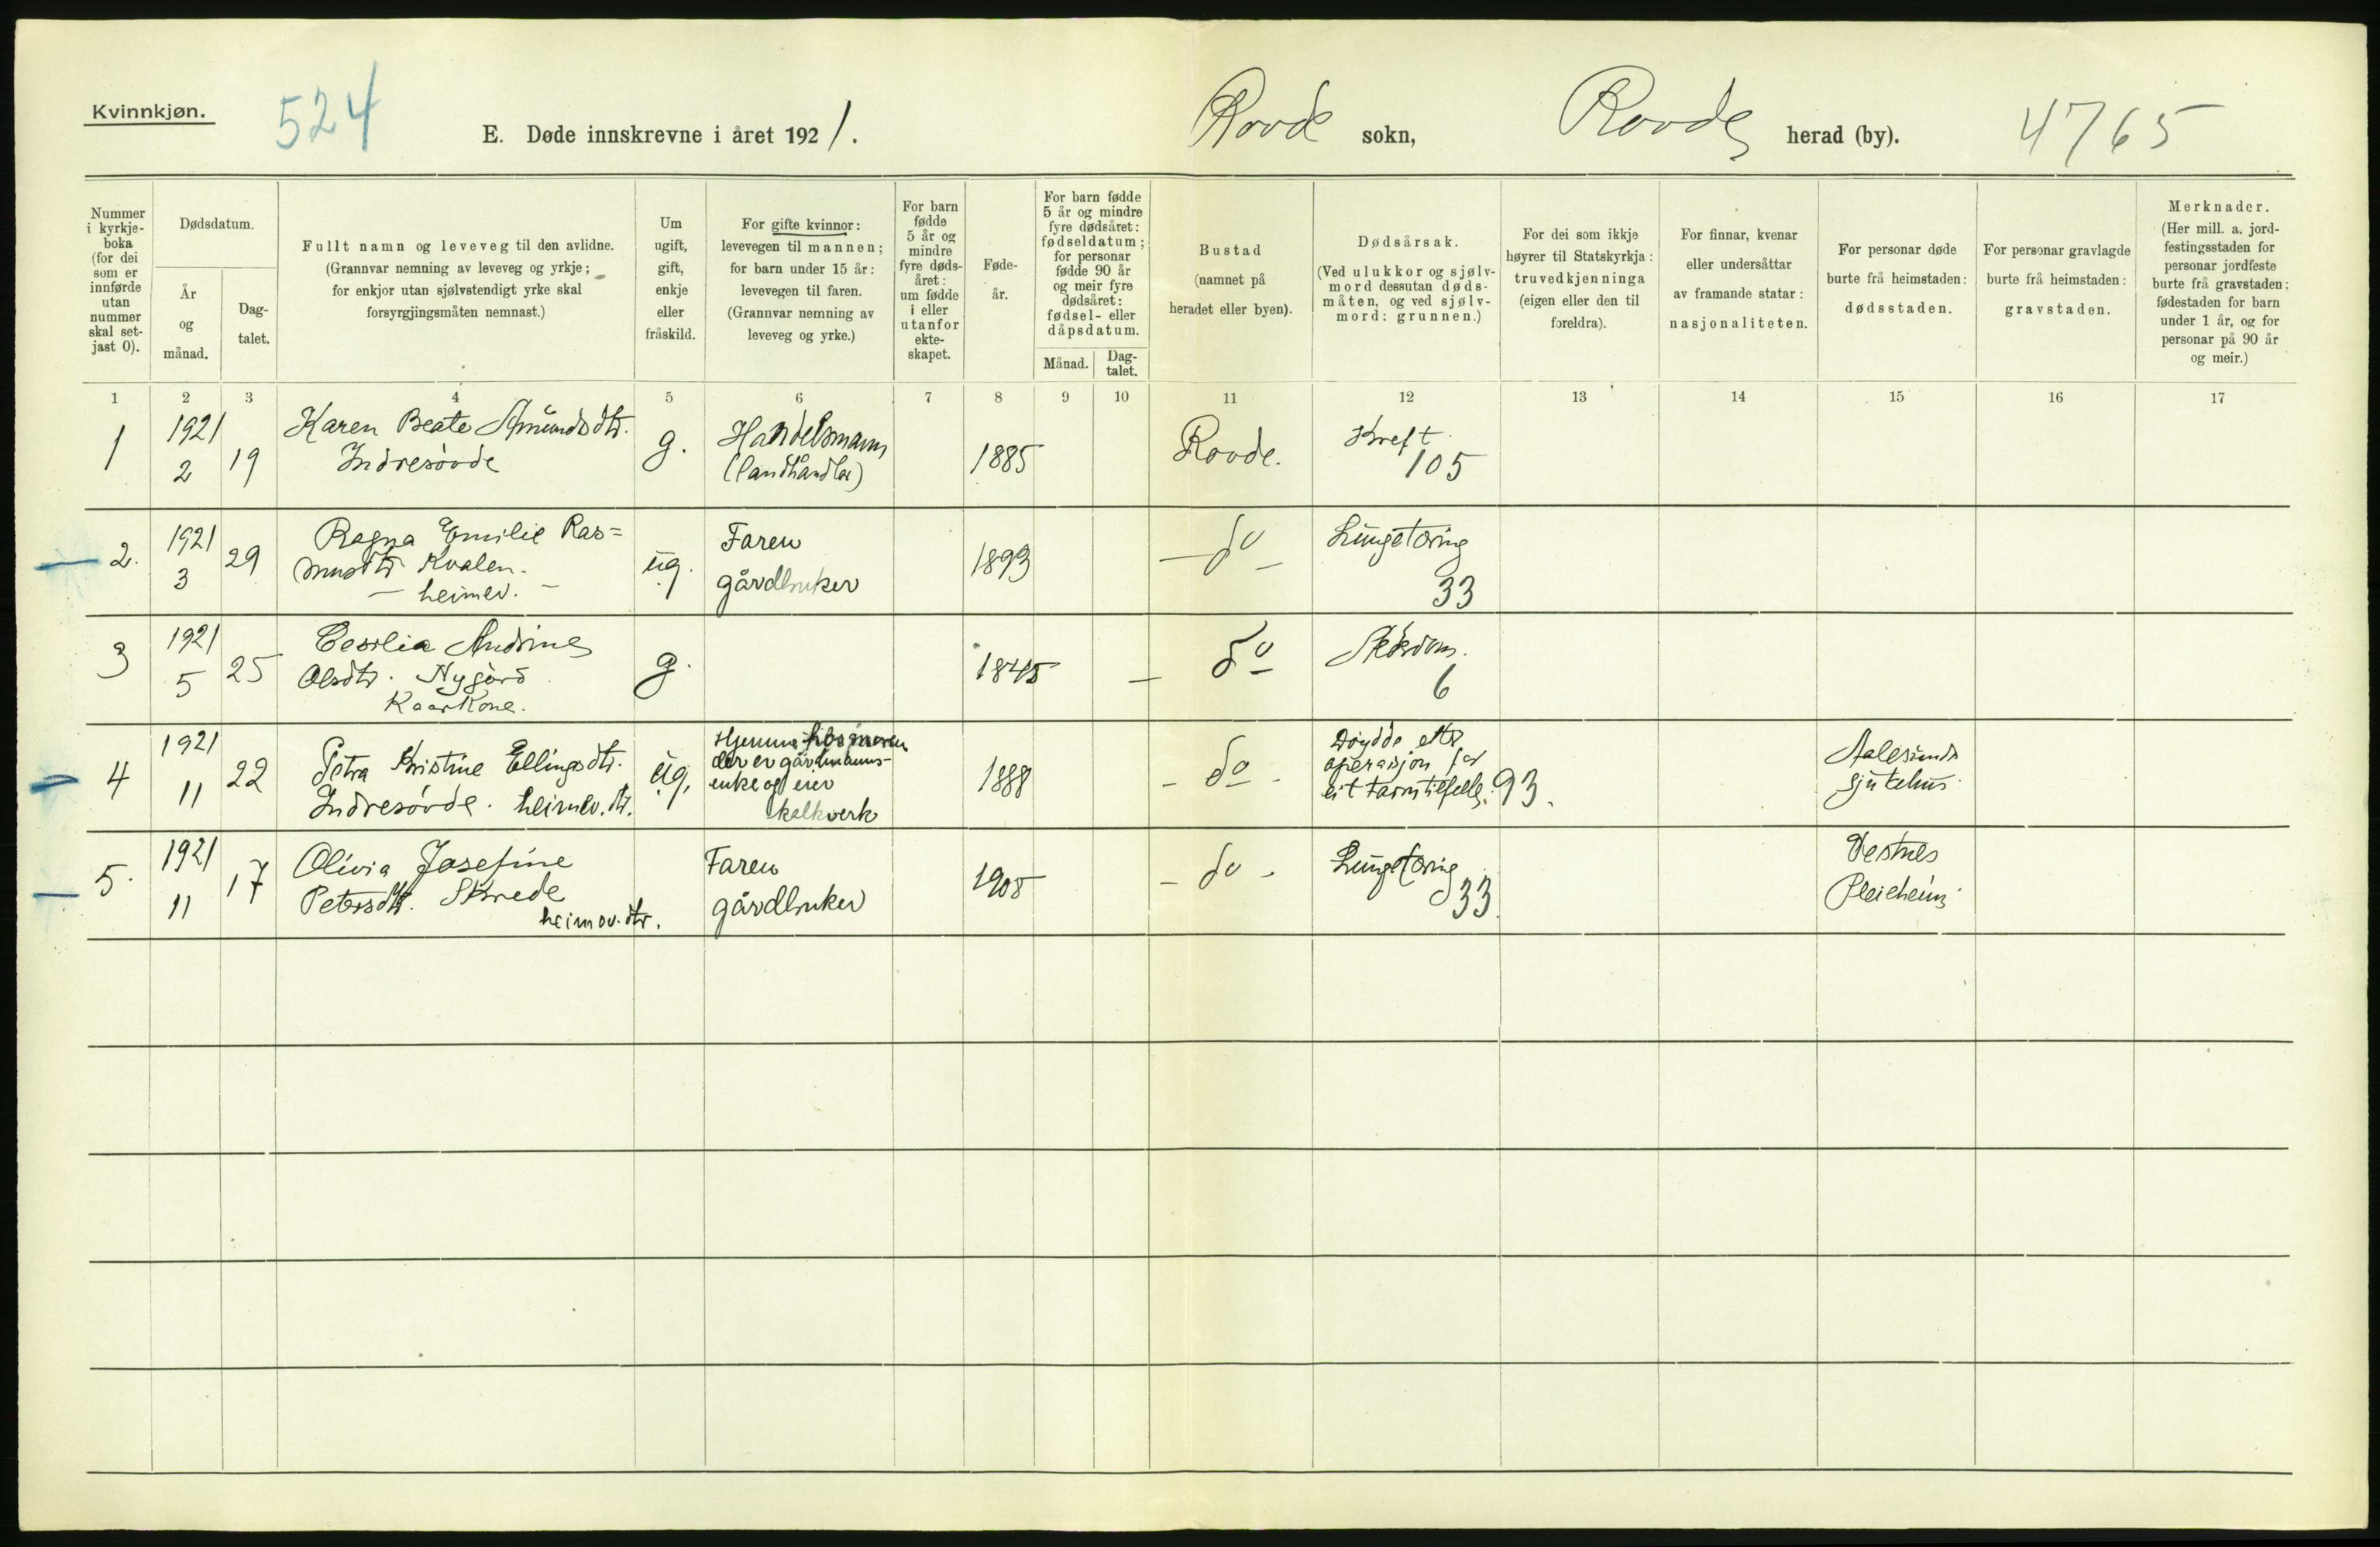 Kvinnkjøn.
524
E. Døde innskrevne i året 1921.
Rovde sokn,
Rovde herad (by).
4765
Nummer
i kyrkje-
boka
(for dei
som er
innførde
utan
nummer
skal set-
jast 0).
Dødsdatum.
År
og
månad.
Dag-
talet.
Fullt namn og leveveg til den avlidne.
(Grannvar nemning av leveveg og yrkje;
for enkjor utan sjølvstendigt yrke skal
forsyrgjingsmåten nemnast.)
Um
ugift,
gift,
enkje
eller
fråskild.
For gifte kvinnor:
levevegen til mannen;
for barn under 15 år:
levevegen til faren.
(Grannvar nemning av
leveveg og yrke.)
For barn
fødde
5 år og
mindre
fyre døds-
året:
um fødde
i eller
utanfor
ekte-
skapet.
Føde-
år.
For barn fødde
5 år og mindre
fyre dødsåret:
fødseldatum;
for personar
fødde 90 år
og meir fyre
dødsåret:
fødsel- eller
dåpsdatum.
Månad.
Dag-
talet.
Bustad
(namnet på
heradet eller byen).
Dødsårsak.
(Ved ulukkor og sjølv-
mord dessutan døds-
måten, og ved sjølv-
mord: grunnen.)
For dei som ikkje
høyrer til Statskyrkja:
truvedkjenninga
(eigen eller den til
foreldra).
For finnar, kvenar
eller undersåttar
av framande statar:
nasjonaliteten.
For personar døde
burte frå heimstaden:
dødsstaden.
For personar gravlagde
burte frå heimstaden:
gravstaden.
Merknader.
(Her mill. a. jord-
festingsstaden for
personar jordfeste
burte frå gravstaden;
fødestaden for barn
under 1 år, og for
personar på 90 år
og meir.)
1 2 3 4 5 6 7 8 9 10 11 12 13 14 15 16 17
1
1921
2
19
Karen Beate Amundsdtr.
Indresövde
g.
Handelsmann
(landhandlar)
1885
Rovde.
Kreft
105
2.
1921
3
29
Ragna Emilie Ras=
musdtr Kvalen.
— heimev. —
ug.
Faren
gårdbruker
1893
— do —
Lungetæring
33
3
1921
5
25
Cesilia Andrine
Olsdtr. Nygård
Kaarkone.
g.
1845
— do —
6
4
1921
11
22
Petra Kristine Ellingsdtr.
Indresövde. heimev. dtr.
ug.
Hjemme hos moren
der er gårdmanns-
enke og eier
kalkverk
1888
- do -
Døydde etter
operasjon for
eit tarmtilfelle. 93.
Aalesunds
sjukehus
5.
1921
11
17
Olivia Josefine
Petersdtr. Skrede
heimev. dtr.
Faren
gårdbruker
1905
- do -
Lungetæring
33.
Vestnes
Pleieheim